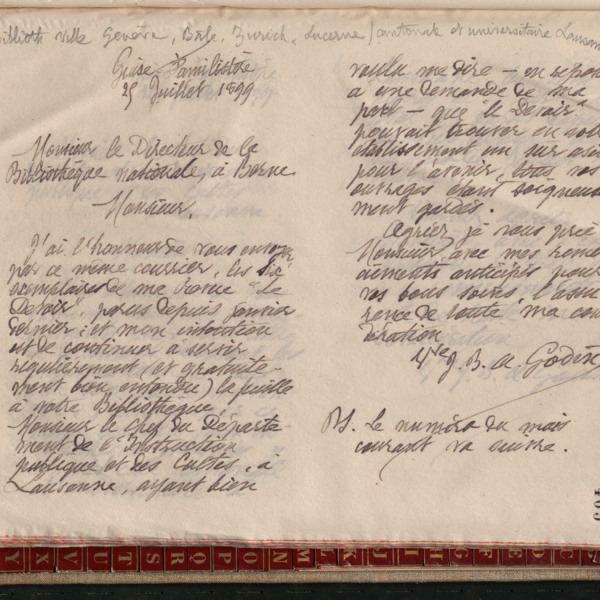 Biblioth ville Genève, Bâle, Zurich, Lucerne / cantonale et universitaire Lausan
Guise Familistère
25 Juillet 1899
Monsieur le Directeur de la
Bibliothèque nationale, à Berne
Monsieur,
J'ai l'honneur de vous envoyer
par ce même courrier, les six
exemplaires de ma revue "Le
Devoir", parus depuis janvier
dernier; et mon intention
est de continuer à servir
régulièrement (et gratuite-
ment bien entendu) la feuille
à votre Bibliothèque.
Monsieur le Chef du Départe-
ment de l'Instruction
publique et des Cultes, à
Lausanne, ayant bien
voulu me dire — en répon
à une demande de ma
part — que "le Devoir"
pourrait trouver en votr
établissement un sûr asil
pour l'avenir, tous vos
ouvrages étant soigneus
ment gardés.
Agréer je vous prie
Monsieur avec mes remer
ciements anticipés pour
vos bons soins, l'assu
rance de toute ma con
sidération
Vve J. B. A. Godin
PS. Le numéro du mois
courant va suivre.
C
D
E
F
G
H
I
J
K
L
M
N
O
P
Q
R
S
T
U
V
X
Y